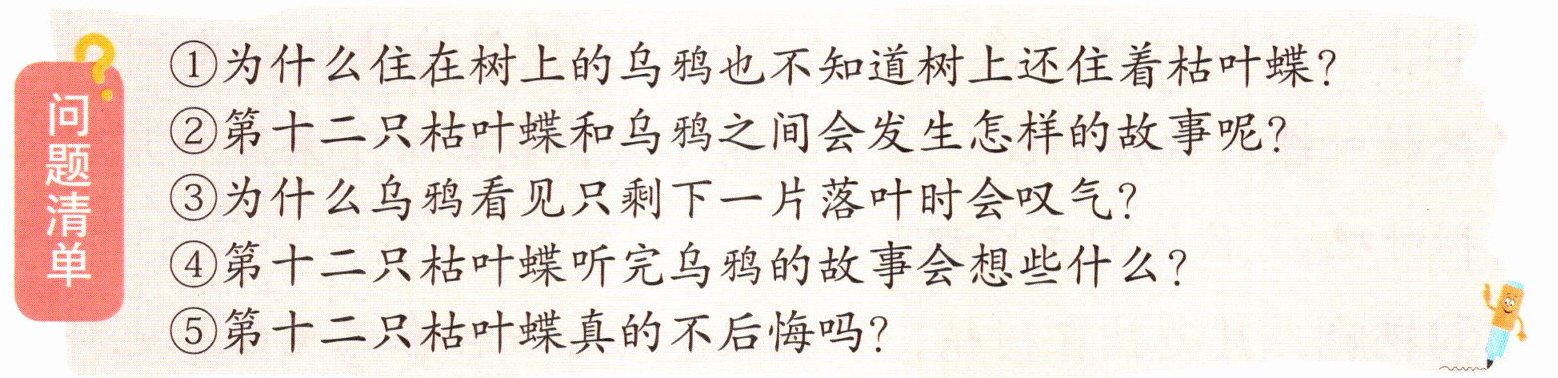 问题清单
①为什么住在树上的乌鸦也不知道树上还住着枯叶蝶?
②第十二只枯叶蝶和乌鸦之间会发生怎样的故事呢?
③为什么乌鸦看见只剩下一片落叶时会叹气?
④第十二只枯叶蝶听完乌鸦的故事会想些什么?
⑤第十二只枯叶蝶真的不后悔吗?